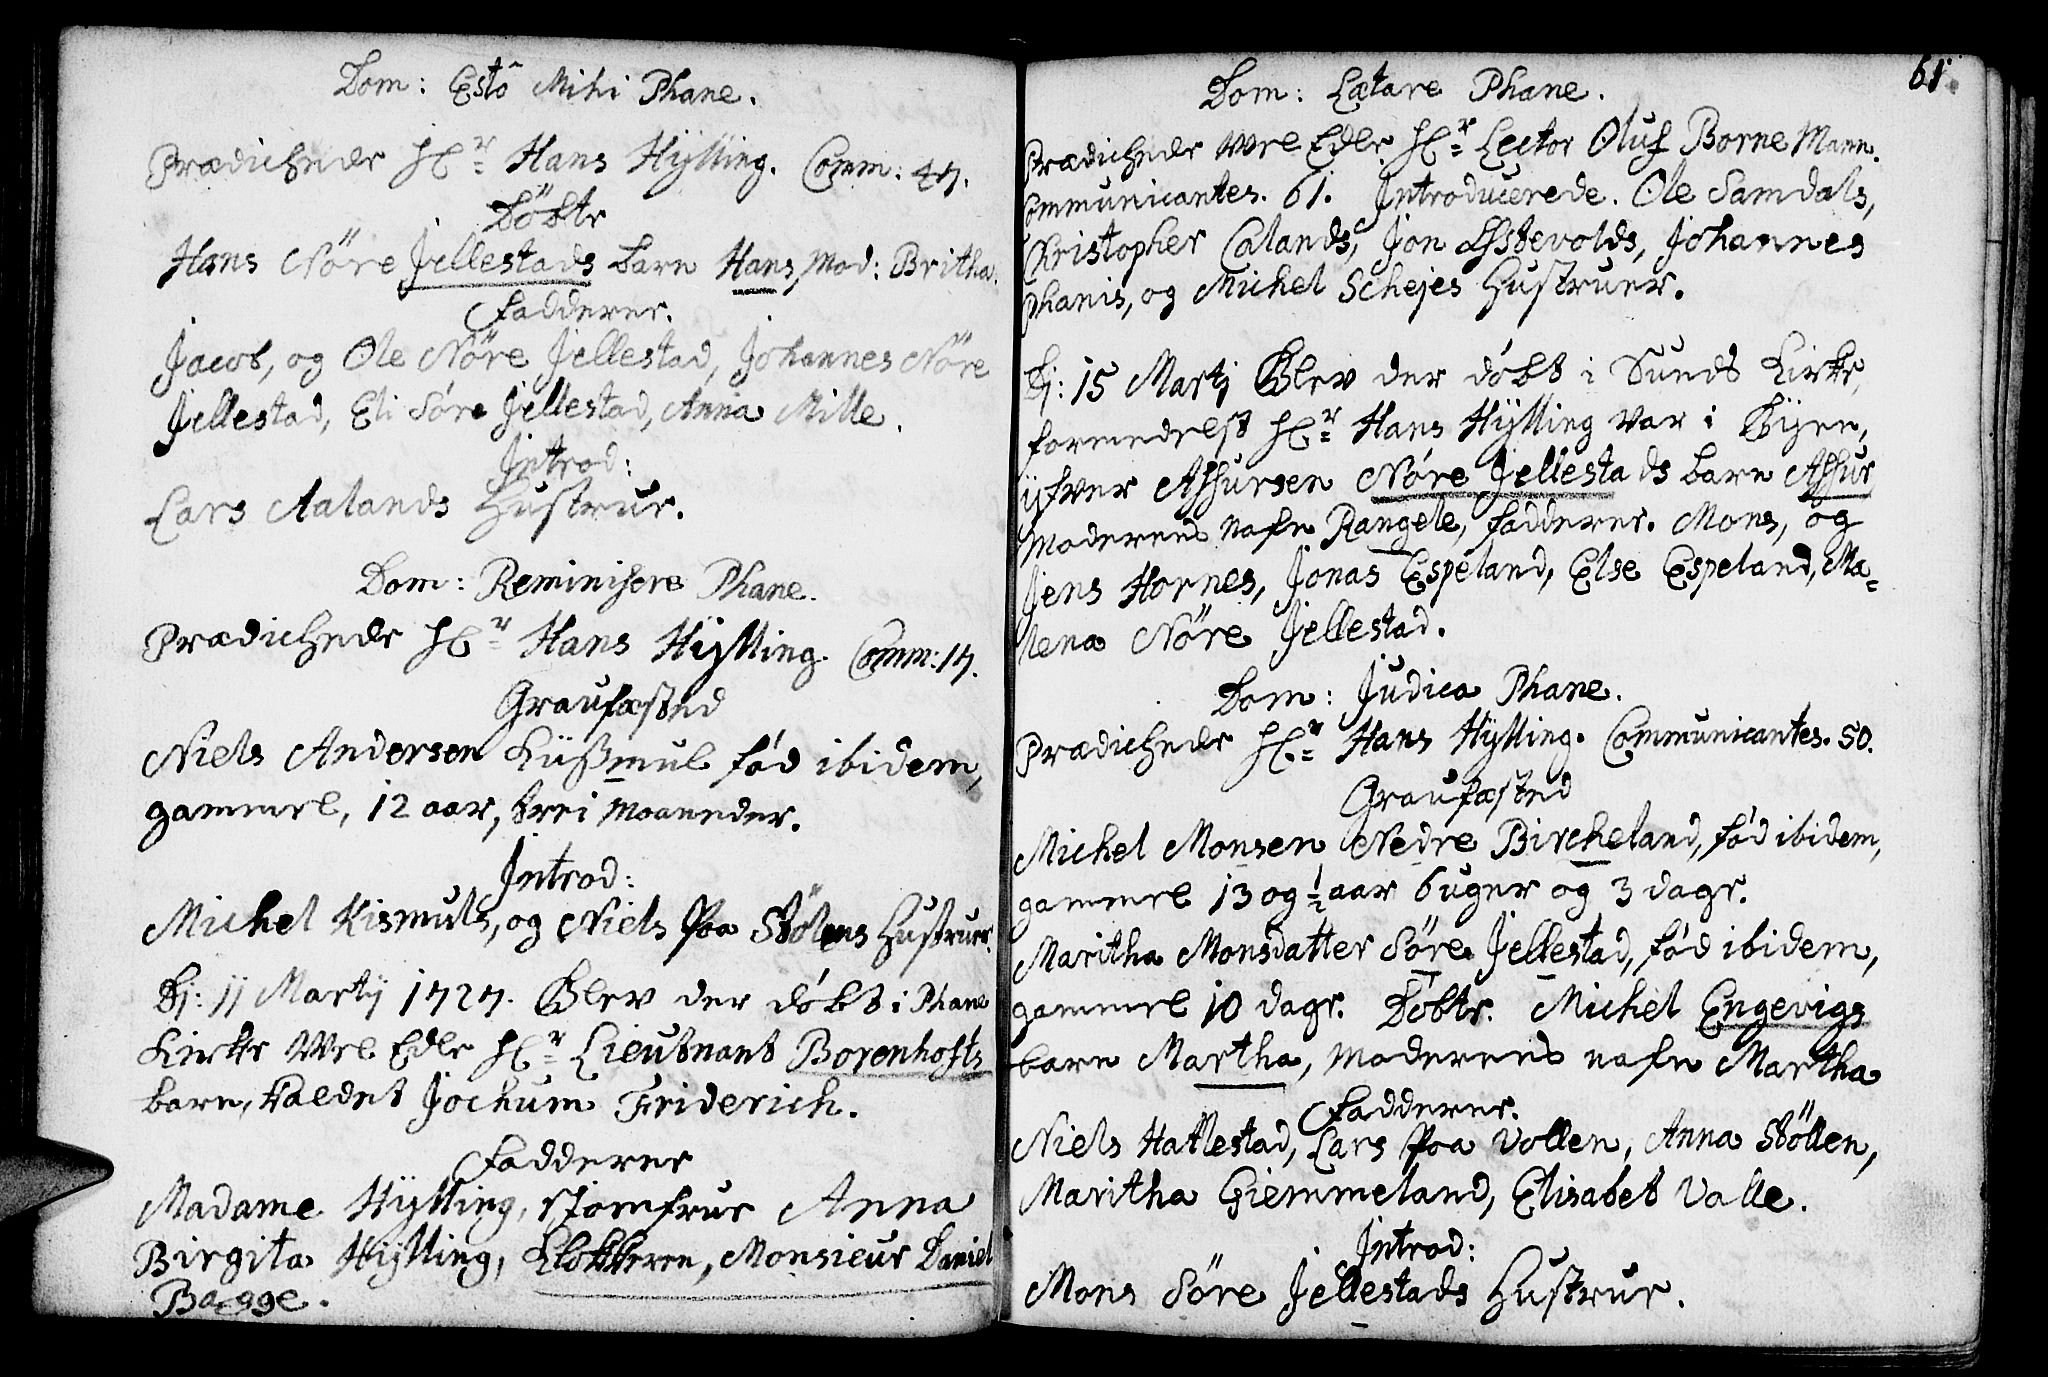 Dom: Estô Mihi Phane.
Prædichede Hr Hans Hÿtting. Comm: 47.
Döbte
Hans Nöre Jellestads barn Hans, Mod: Britha.
Fadderer.
Jacob, og Ole Nöre Jellestad, Johannes Nöre
Jellestad, Eli Söre Jellestad, Anna Mille.
Introd:
Lars Aalands Hustrue.
Dom: Reminisere Phane.
Prædichede Hr Hans Hÿtting. Comm: 17.
Graufæsted
Niels Andersen Küßmul fód ibidem,
gammel, 12 aar, trei Maaneder.
Introd:
Michel Kismuls, og Niels Paa Stölens Hustruer.
Dj: 11 Martij 1727. Blev der dóbt i Phane
Kirke Wel Edle Hr Lieutnant Borenhofts
barn, kaldet Jochum Friderich.
Fadderer
Madame Hÿtting, Jomfrue Anna
Birgita Hÿtting, Klokkeren, Monsieur Daniel
Bagge.
61.
Dom: Lætare Phane.
Prædichede Wel Edle Hr Lector Oluf Borne Mann.
Communicantes. 61. Introducerede. Ole Samdals,
Christopher Calands, Jon Astevolds, Johannes
Phanis, og Michel Schejes Hustruer.
Dj: 15 Martj Blev der dóbt i Sunds Kirke,
formedelst Hr Hans Hÿtting var i Bÿen,
ÿfver Assursen Nóre Jellestads barn Assur
Moderens Nafn Rangele, fadderer. Mons, og
Jens Hornes, Jonas Espeland, Else Espeland, Ma-
lena Nöre Jellestad.
Dom: Judica Phane.
Prædichede Hr Hans Hÿtting. Communicantes. 50.
Graufæsted
Michel Monsen Nedre Bircheland, fód ibidem,
gammel 13 og ½ aar 6 uger og 3 dage.
Maritha Monsdatter Söre Jellestad, fód ibidem,
gammel 10 dage. Döbte. Michel Engevigs
barn Martha, Moderens nafn Martha
Fadderer.
Niels Hatlestad, Lars Paa Vollen, Anna Stöllen,
Maritha Giemmeland, Elisabet Valle.
Introd:
Mons Söre Jellestads Hustrue.